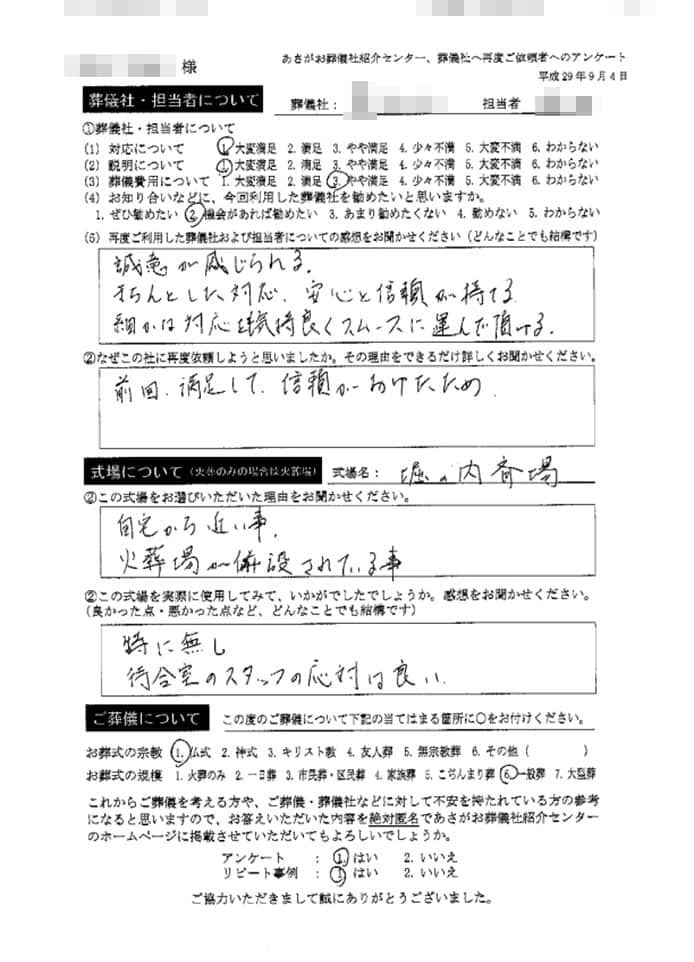 様
あさがお葬儀社紹介センター、葬儀社へ再度ご依頼者へのアンケート
平成29年9月4日
葬儀社・担当者について 葬儀社： 担当者
①葬儀社・担当者について
(1) 対応について 1. 大変満足 2. 満足 3. やや満足 4. 少々不満 5. 大変不満 6. わからない
(2) 説明について 1. 大変満足 2. 満足 3. やや満足 4. 少々不満 5. 大変不満 6. わからない
(3) 葬儀費用について 1. 大変満足 2. 満足 3. やや満足 4. 少々不満 5. 大変不満 6. わからない
(4) お知り合いなどに、今回利用した葬儀社を勧めたいと思いますか。
1. ぜひ勧めたい 2. 機会があれば勧めたい 3. あまり勧めたくない 4. 勧めない 5. わからない
(5) 再度ご利用した葬儀社および担当者についての感想をお聞かせください（どんなことでも結構です）
誠意が感じられる.
きちんとした対応. 安心と信頼が持てる
細かな対応を気持良くスムースに運んで頂ける.
②なぜこの社に再度依頼しようと思いましたか。その理由をできるだけ詳しくお聞かせください。
前回. 満足して. 信頼がおけたため.
式場について（火葬のみの場合は火葬場） 式場名： 堀ノ内斎場
②この式場をお選びいただいた理由をお聞かせください。
自宅から近い事.
火葬場が併設されている事
②この式場を実際に使用してみて、いかがでしたでしょうか。感想をお聞かせください。
（良かった点・悪かった点など、どんなことでも結構です）
特に無し
待合室のスタッフの応対は良い.
ご葬儀について この度のご葬儀について下記の当てはまる箇所に○をお付けください。
お葬式の宗教 1. 仏式 2. 神式 3. キリスト教 4. 友人葬 5. 無宗教葬 6. その他（ ）
お葬式の規模 1. 火葬のみ 2. 一日葬 3. 市民葬・区民葬 4. 家族葬 5. こぢんまり葬 6. 一般葬 7. 大型葬
これからご葬儀を考える方や、ご葬儀・葬儀社などに対して不安を持たれている方の参考
になると思いますので、お答えいただいた内容を絶対匿名であさがお葬儀社紹介センター
のホームページに掲載させていただいてもよろしいでしょうか。
アンケート ： 1. はい 2. いいえ
リピート事例 ： 1. はい 2. いいえ
ご協力いただきまして誠にありがとうございました。